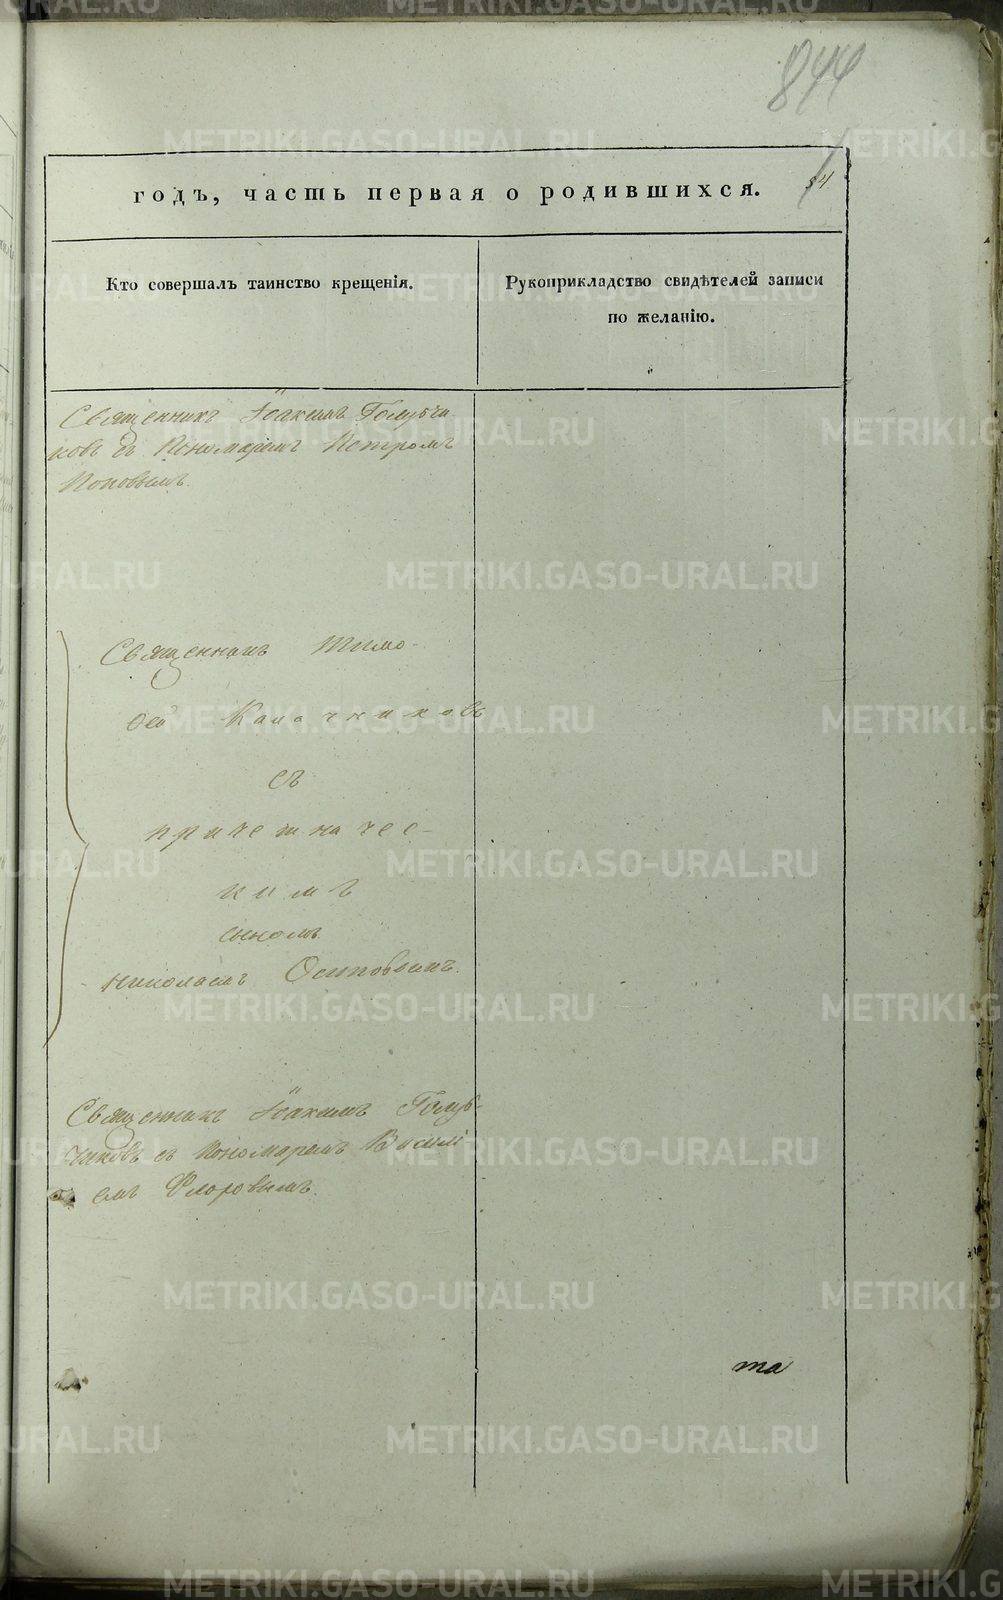 844
54
годъ, часть первая о родившихся.
Кто совершалъ таинство крещенія.
Рукоприкладство свидѣтелей записи
по желанію.
Священникъ Іоакимъ Голубчи
ковъ съ Пономаремъ Петромъ
Поповымъ.
Священникъ Тимо-
ѳей Калачниковъ
съ
причетничес-
кимъ
сыномъ
Николаемъ Осиповымъ.
Священникъ Іоакимъ Голуб-
чиковъ съ Пономаремъ Василі
емъ Флоровымъ.
та
METRIKI.GASO-URAL.RU